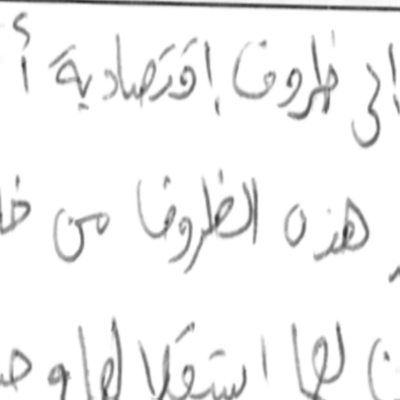 الى ظروف إقتصادية أ
هذه الظروف من خا
لها استقلالها و